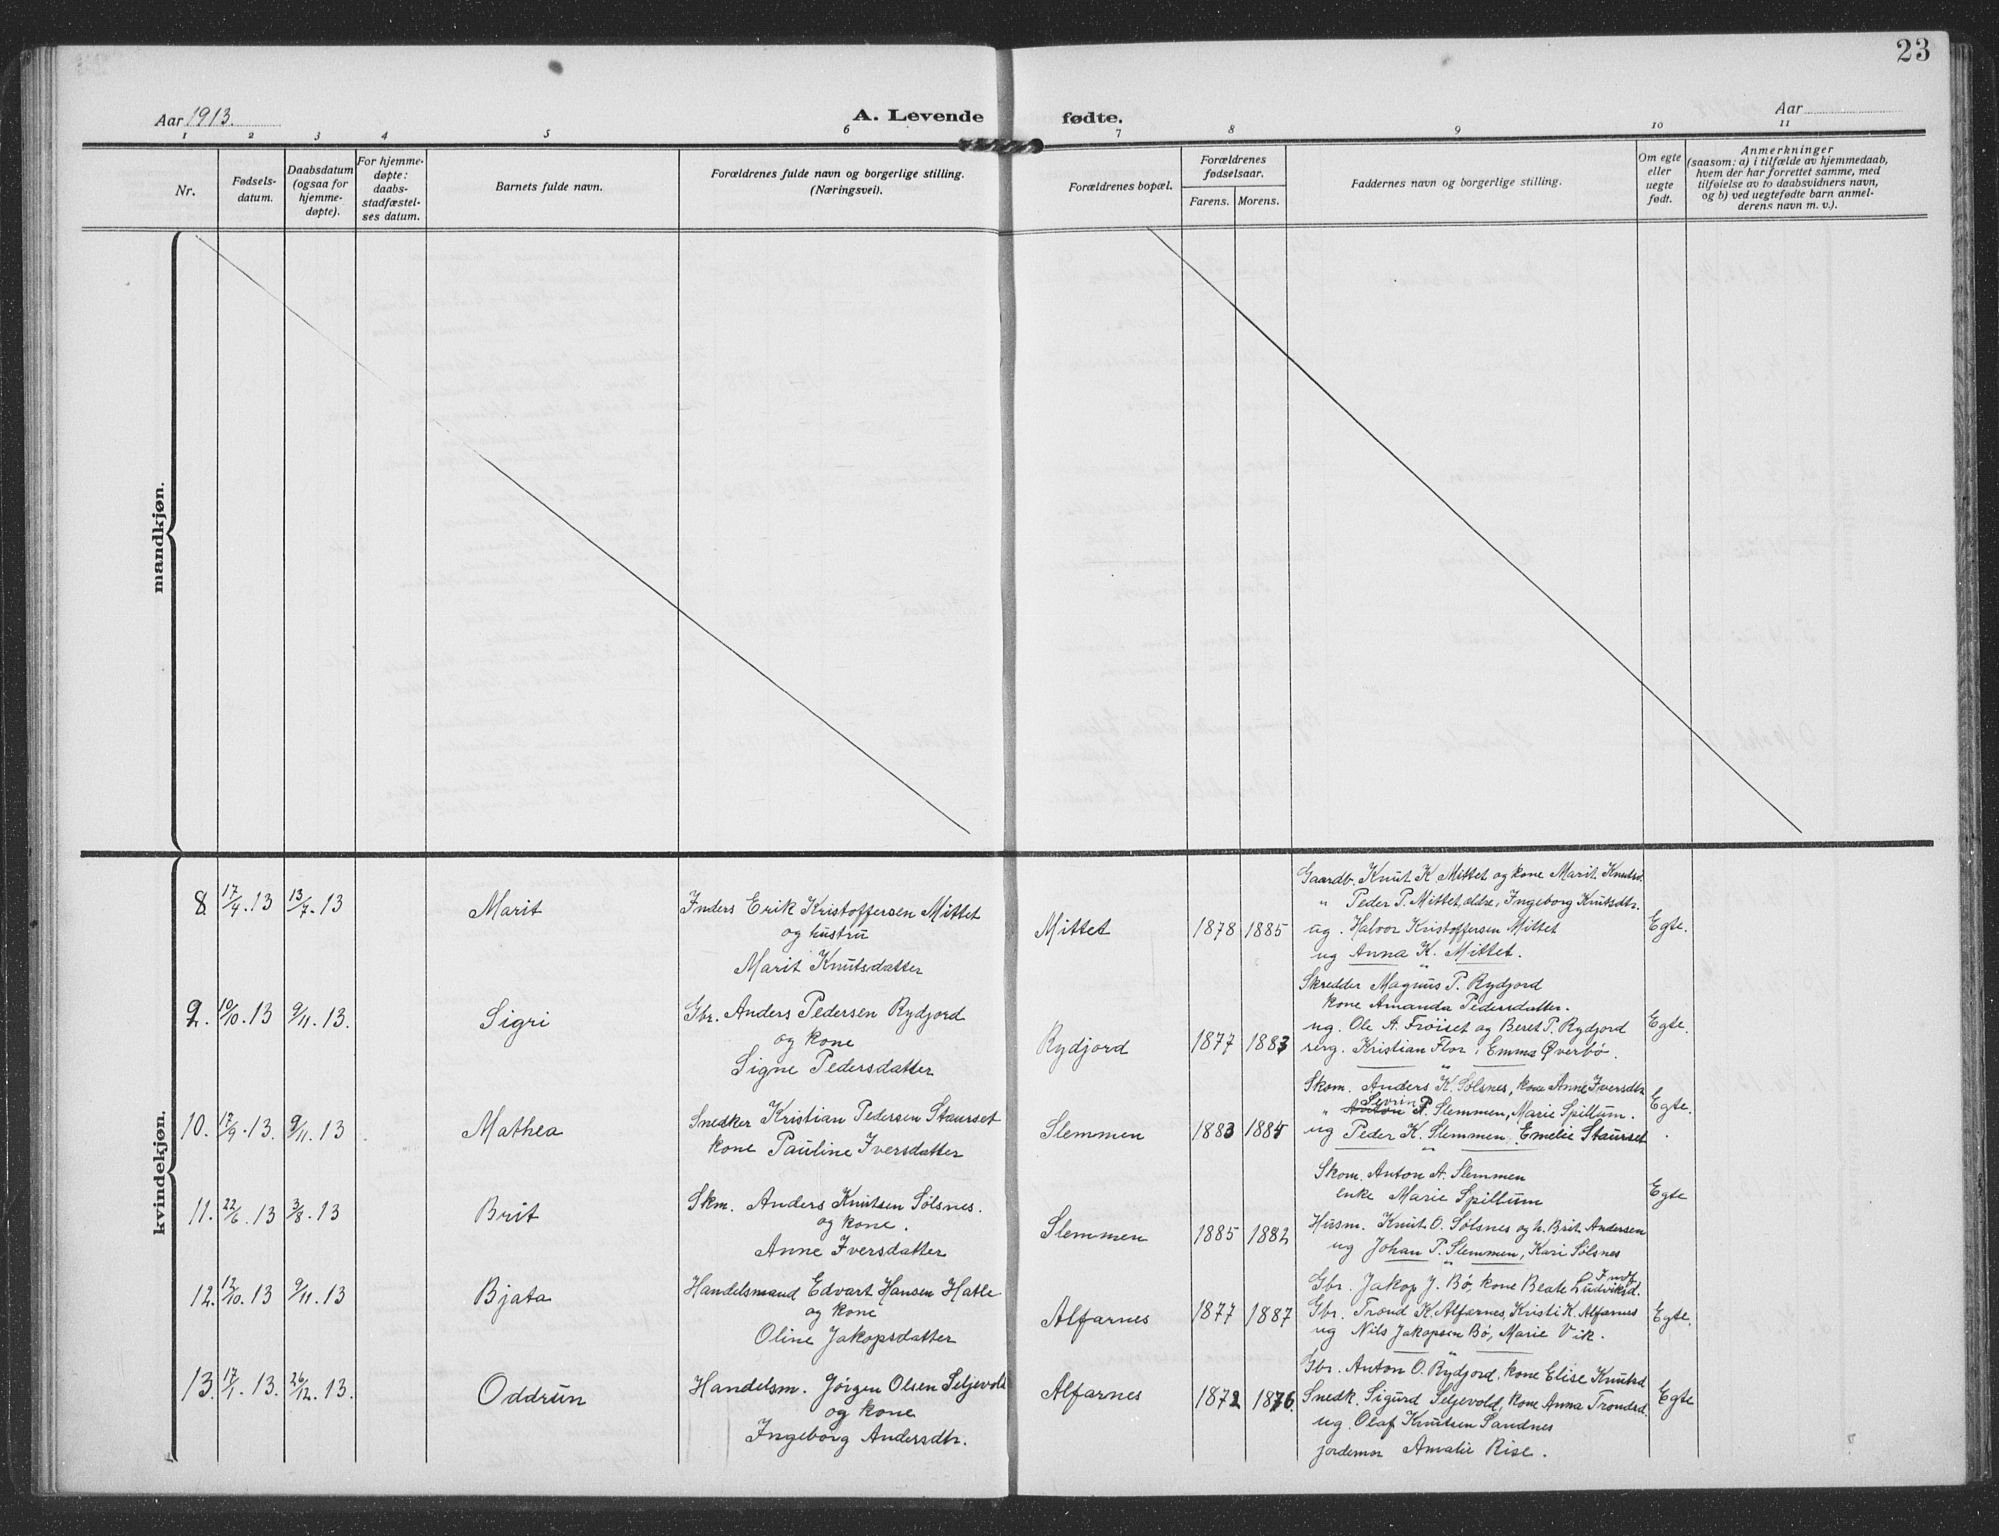 23
Aar 1913.
A. Levende fødte.
Aar
1 2 3 4 5 6 7 8 9 10 11
Nr.
Fødsels-
datum.
Daabsdatum
(ogsaa for
hjemme-
døpte).
For hjemme-
døpte:
daabs-
stadfæstel-
ses datum.
Barnets fulde navn.
Forældrenes fulde navn og borgerlige stilling.
(Næringsvei).
Forældrenes bopæl.
Forældrenes
fødselsaar.
Farens. Morens.
Faddernes navn og borgerlige stilling.
Om egte
eller
uegte
født.
Anmerkninger
(saasom: a) i tilfælde av hjemmedaab,
hvem der har forrettet samme, med
tilføielse av to daabsvidners navn,
og b) ved uegtefødte barn anmel-
derens navn m. v.).
mandkjøn.
kvindekjøn.
8. 17/4.13 13/7.13 Marit
Inders Erik Kristoffersen Mittet
og hustru
Marit Knutsdatter
Mittet 1878 1885
Gaardb. Knut K. Mittet og kone Marit Knutsd.
" Peder P. Mittet, eldre, Ingeborg Knutsdtr.
ug. Halvor Kristoffersen Mittet
ug Anna K. Mittet.
Egte.
9. 10/10.13 9/11.13. Sigri
Gbr. Anders Pedersen Rydjord
og kone
Signe Pedersdatter
Rydjord 1877 1883
Skredder Magnus P. Rydjord
kone Amanda Pedersdatter.
ug. Ole A. Frøiset og Beret P. Rydjord
serg. Kristian Flor, Emma Øverbø.
Egte.
10. 17/9.13. 9/11.13 Mathea
Snedker Kristian Pedersen Staurset
kone Pauline Iversdatter
Slemmen 1883 1884
Skom. Anders K. Sølsnes, kone Anne Iversdtr
Sevrin
" Anton P. Slemmen, Marie Spillum.
ug Peder K. Slemmen, Emelie Staurset
Egte.
11. 22/6.13 3/8.13 Brit
Skm. Anders Knutsen Sølsnes.
og kone.
Anne Iversdatter
Slemmen 1885 1882
Skom. Anton A. Slemmen
enke Marie Spillum
Husm. Knut O. Sølsnes og h. Brit Andersen
ug Johan P. Slemmen, Kari Sølsnes
Egte
12. 12/10.13 9/11.13 Bjata
Handelsmand Edvart Hansen Hatle
og kone
Oline Jakopsdatter
Alfarnes 1877 1887
Gbr. Jakop J. Bø, kone Beate Ludviksd.
Gbr. Trond K. Alfarnes, Kristi K. Alfarnes
ug Nils Jakopsen Bø, Marie Vik.
Egte.
13. 17/1.13. 26/12.13. Oddrun
Handelsm. Jørgen Olsen Seljevold
og kone
Ingeborg Andersdtr.
Alfarnes 1872 1876.
Gbr. Anton O. Rydjord, kone Elise Knutsd
Snedk. Sigurd Seljevold, kone Anna Trondsd.
ug. Olaf Knutsen Sandnes
jordemor Amalie Rise.
Egte